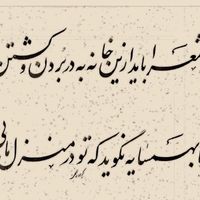 شعر را باید ازین خانه به در بردن و کشتن
با همسایه نگوید که تو در منزل مایی